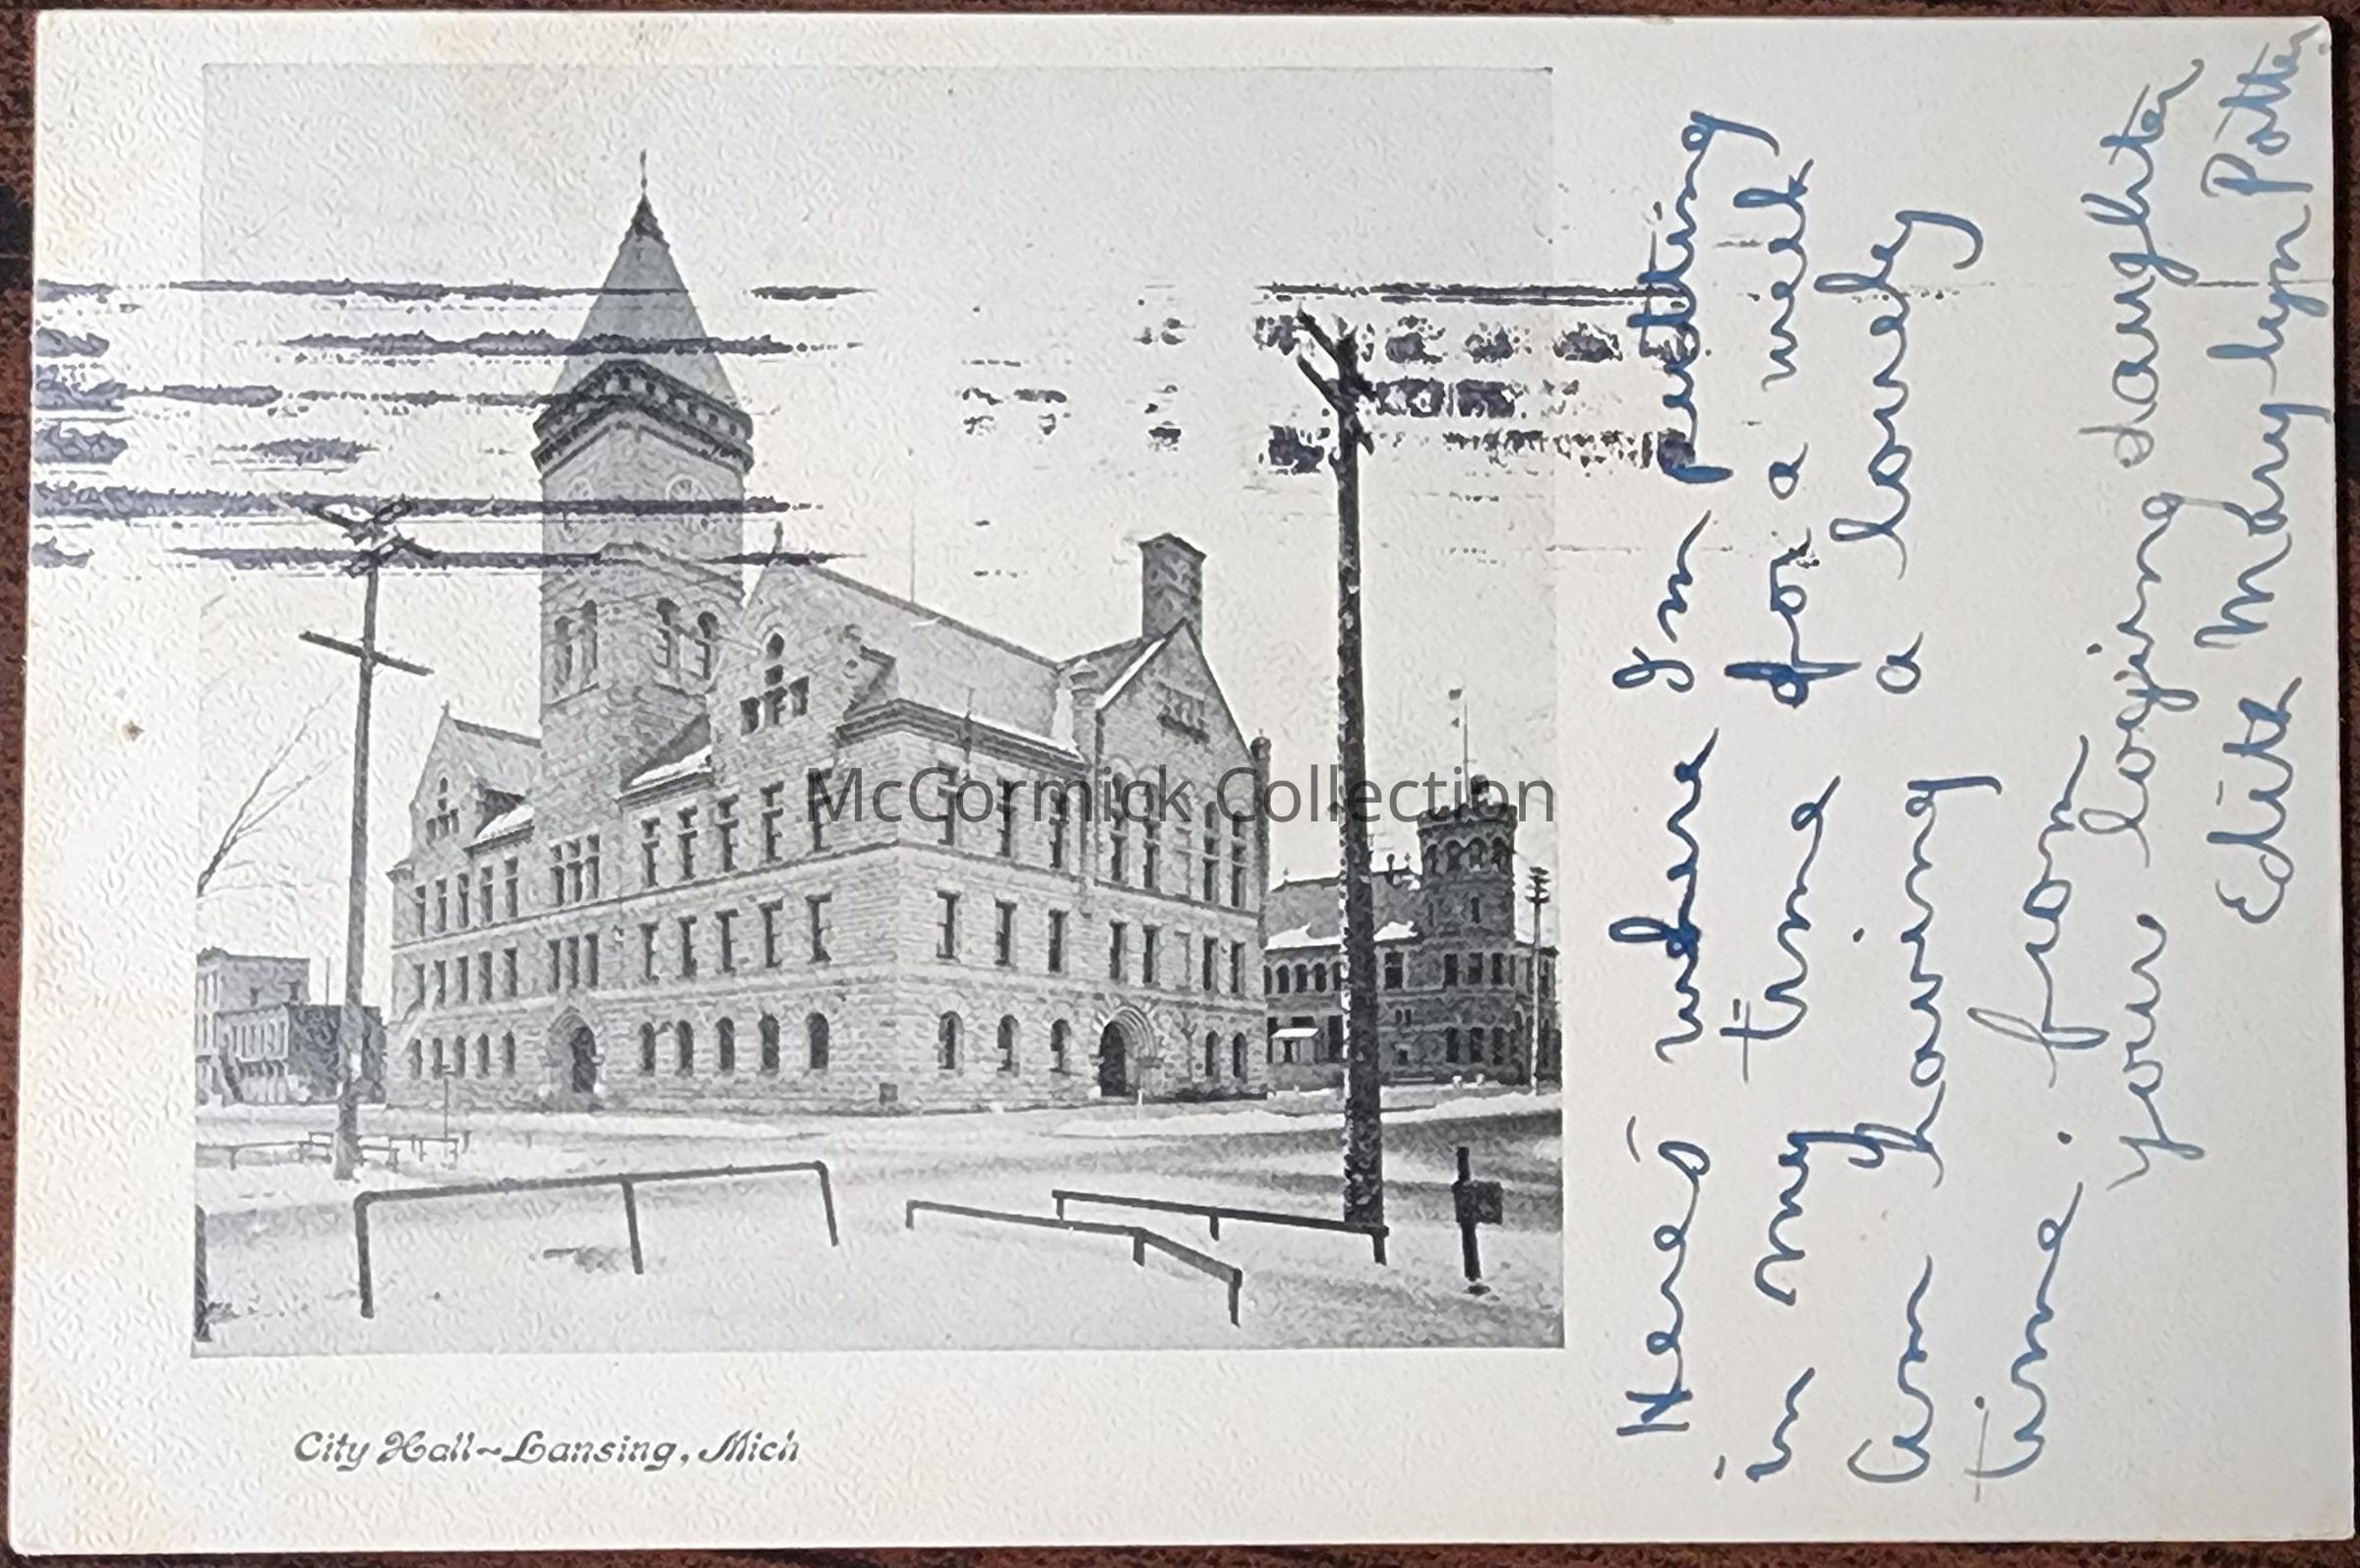 City Hall~Lansing, Mich
Heres where I'm putting
in my time for a week
Am having a lovely
time. from
your loving daughter
Edith Mary-lyn Potter
McCormick Collection